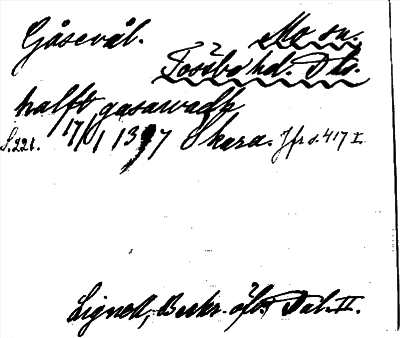 Gåsevål. Mo sn.
Tössbo hd. Dls.
halfft gasawadh
S. 221. 17/1 1397 Skara. Jfr s. 417 I.
Lignell, Beskr. öfv. Dal. II.